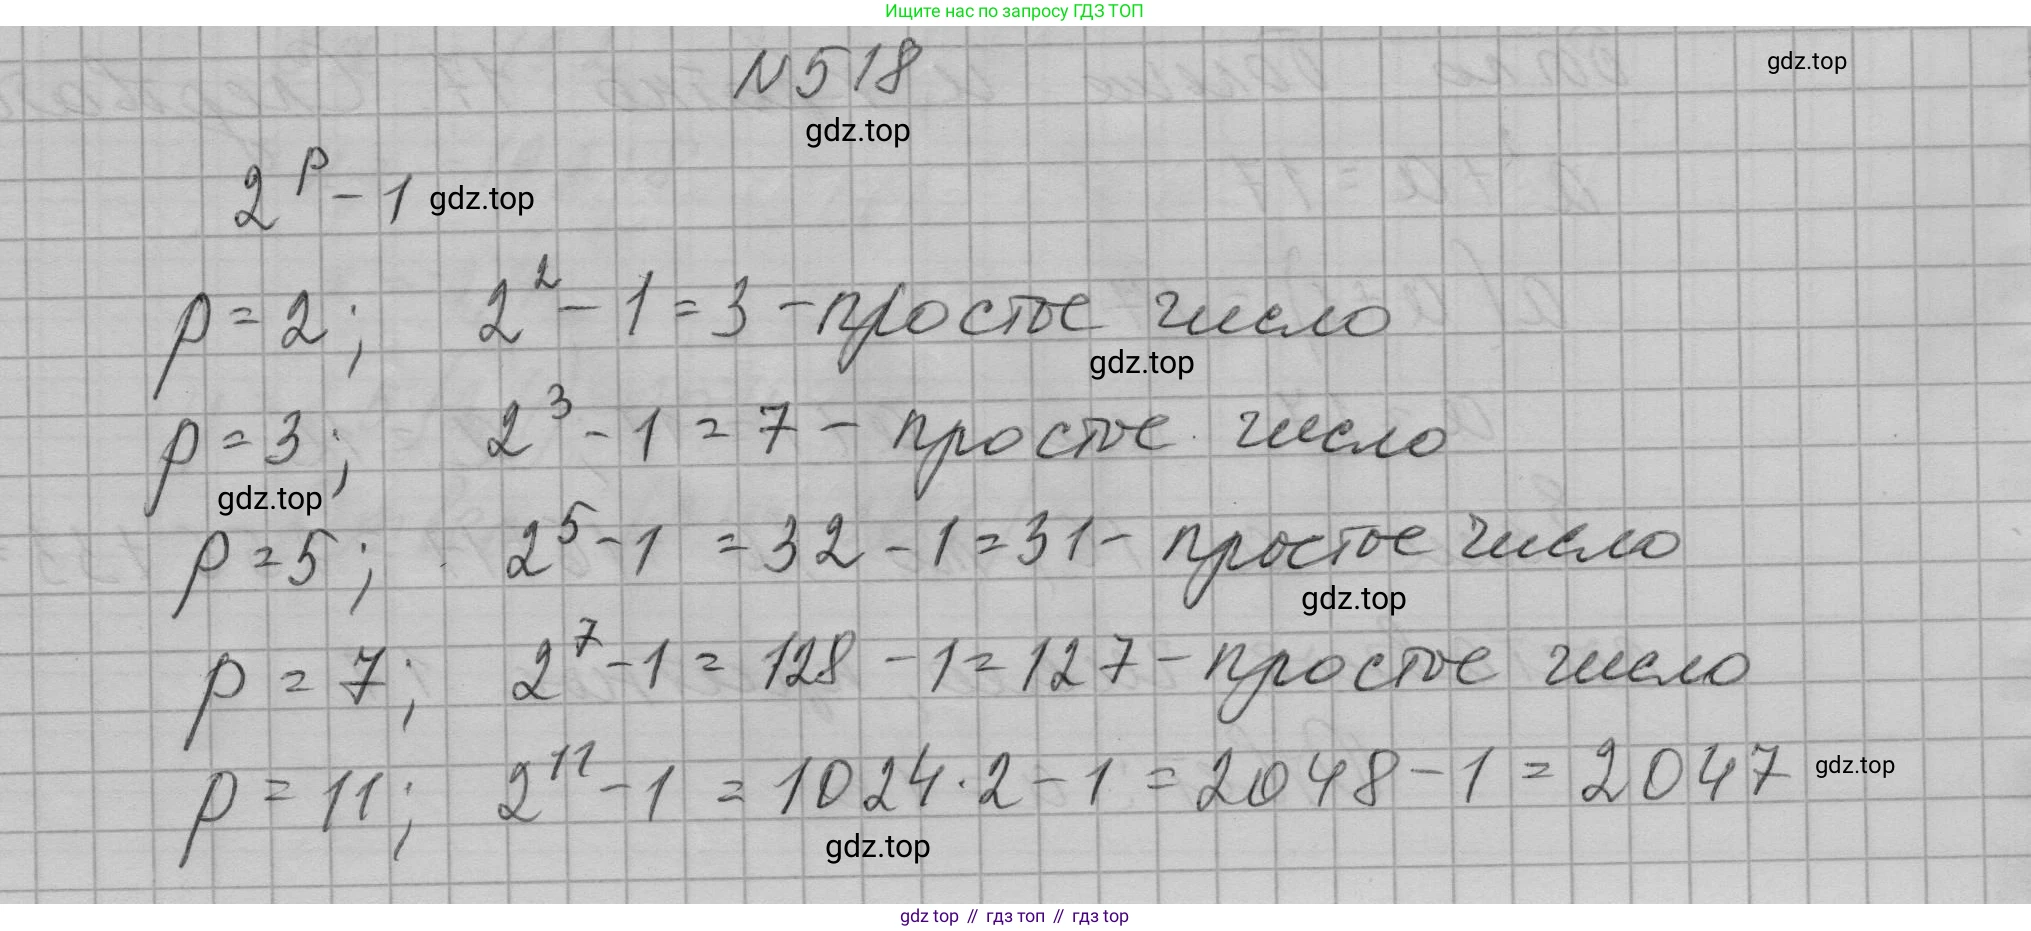 Ищите нас по запросу ГДЗ ТОП
N 518
gdz.top
gdz.top
2^p - 1 gdz.top
p = 2; 2^2 - 1 = 3 - простое число
gdz.top
p = 3; 2^3 - 1 = 7 - простое число
gdz.top
p = 5; 2^5 - 1 = 32 - 1 = 31 - простое число
gdz.top
p = 7; 2^7 - 1 = 128 - 1 = 127 - простое число
p = 11; 2^11 - 1 = 1024 · 2 - 1 = 2048 - 1 = 2047 gdz.top
gdz.top
gdz top // гдз топ // гдз top